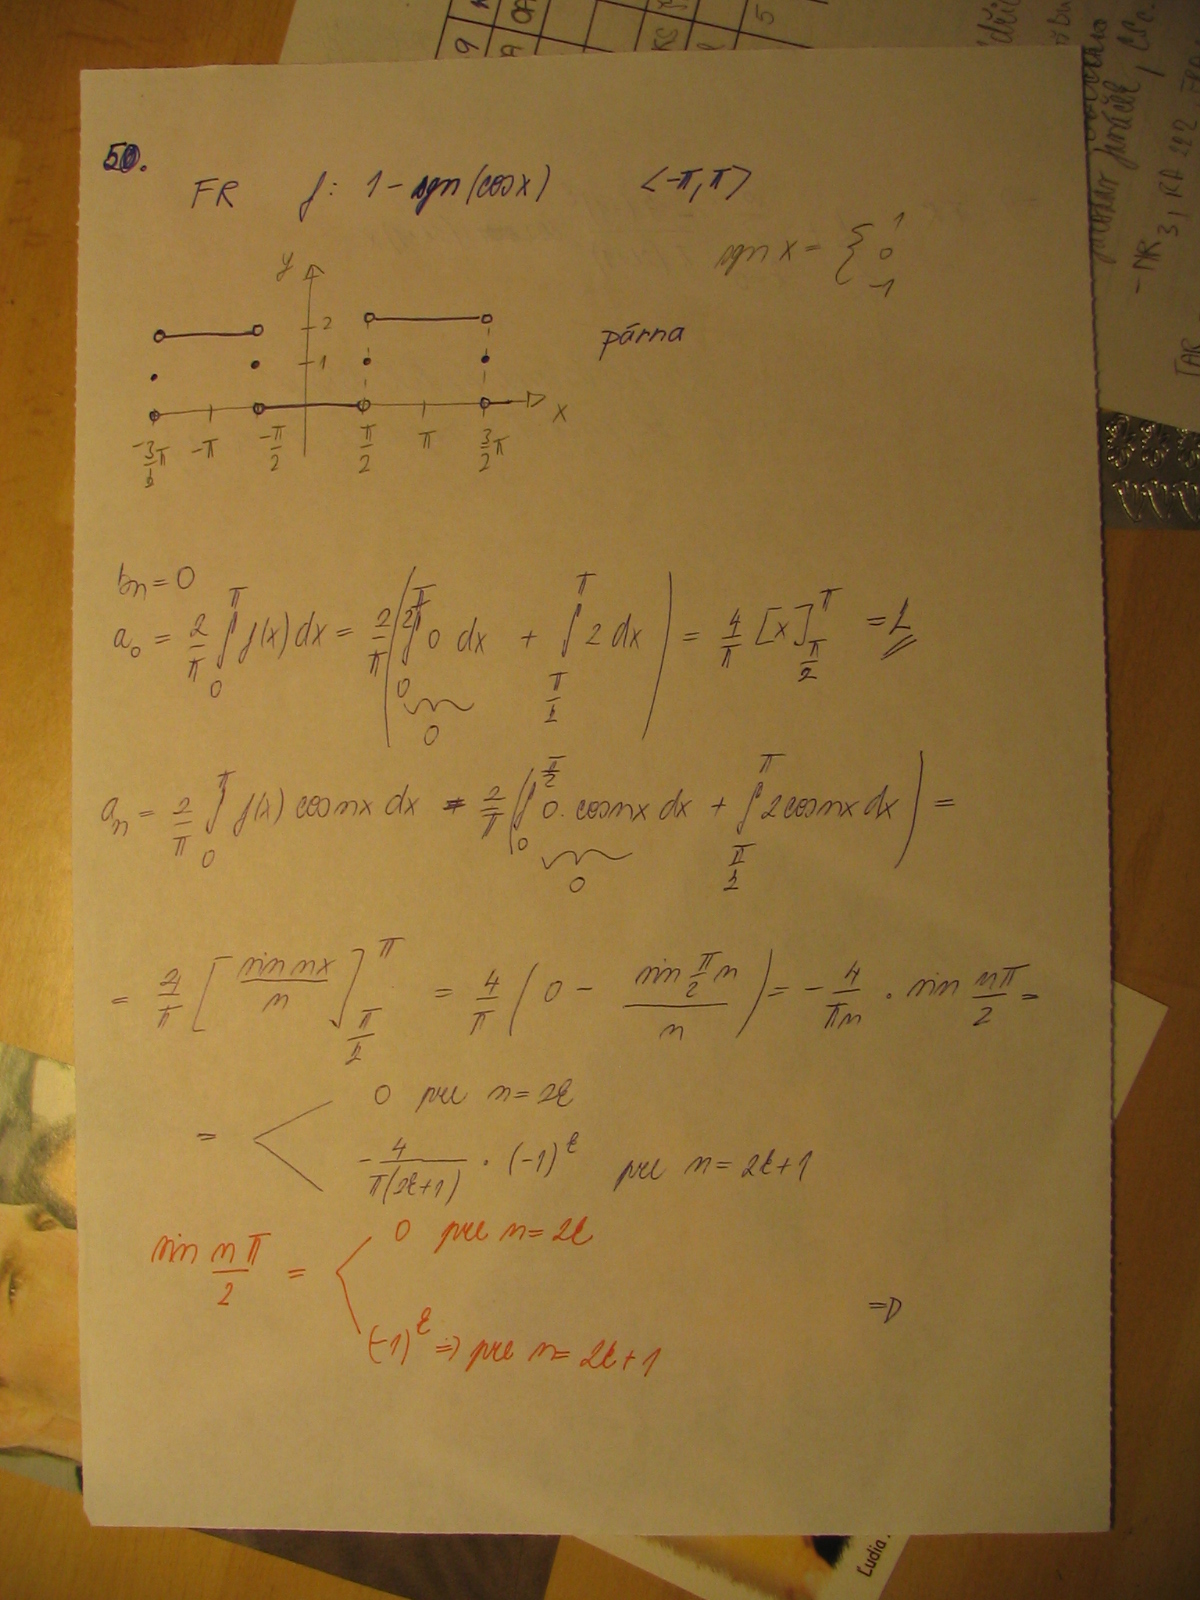 50.
FR f: 1 - sgn(cosx) <-π, π>
sgn x = { 1 0 -1
y
2
1
párna
x
-3/2 π -π -π/2 π/2 π 3/2 π
bn = 0
a₀ = 2/π ∫₀^π f(x) dx = 2/π ( ∫₀^{π/2} 0 dx + ∫_{π/2}^π 2 dx ) = 4/π [x]_{π/2}^π = 2
0
aₙ = 2/π ∫₀^π f(x) cosnx dx = 2/π ( ∫₀^{π/2} 0. cosnx dx + ∫_{π/2}^π 2cosnx dx ) =
0
= 4/π [ sin nx / n ]_{π/2}^π = 4/π ( 0 - sin π/2 n / n ) = - 4/πn · sin nπ/2 =
0 pre n = 2k
=
- 4/π(2k+1) · (-1)^k pre n = 2k+1
0 pre n = 2k
sin nπ/2 =
⇒
(-1)^k ⇒ pre n = 2k+1
5
- NR
3, RA 222
ĽAR
Ľudia